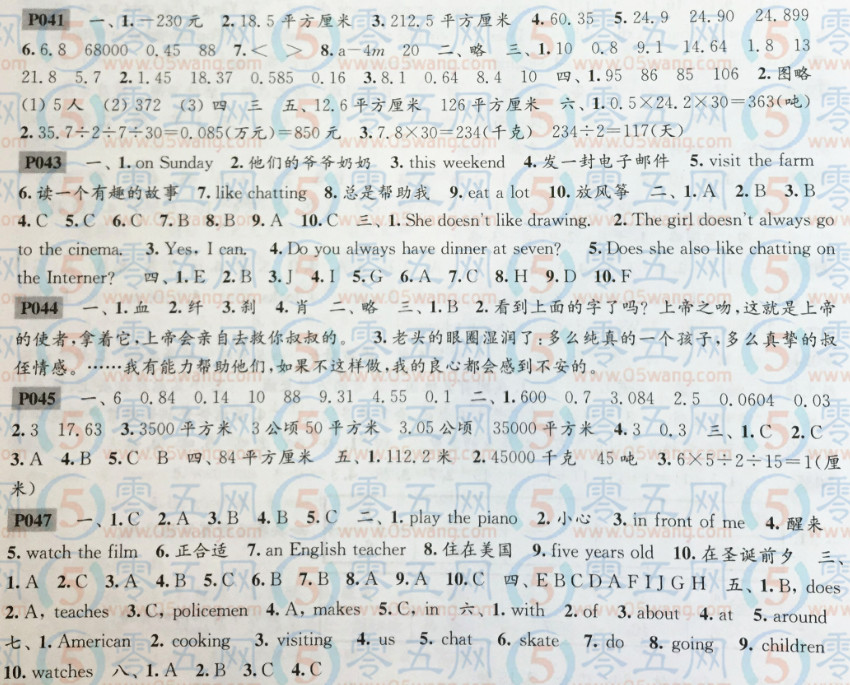 P041 一、1.－230元 2.18.5平方厘米 3.212.5平方厘米 4.60.35 5.24.9 24.90 24.899
6.6.8 68000 0.45 88 7.＜ ＞ 8.a－4m 20 二、略 三、1.10 0.8 9.1 14.64 1.8 13
21.8 5.7 2.1.45 18.37 0.585 0.16 3.8.1 0.64 8.4 10 四、1.95 86 85 106 2.图略
(1) 5人 (2) 372 (3) 四 三 五、12.6平方厘米 126平方厘米 六、1.0.5×24.2×30＝363(吨)
2.35.7÷2÷7÷30＝0.085(万元)＝850元 3.7.8×30＝234(千克) 234÷2＝117(天)
P043 一、1. on Sunday 2. 他们的爷爷奶奶 3. this weekend 4. 发一封电子邮件 5. visit the farm
6. 读一个有趣的故事 7. like chatting 8. 总是帮助我 9. eat a lot 10. 放风筝 二、1. A 2. B 3. B
4. C 5. C 6. C 7. B 8. B 9. A 10. C 三、1. She doesn't like drawing. 2. The girl doesn't always go
to the cinema. 3. Yes, I can. 4. Do you always have dinner at seven? 5. Does she also like chatting on
the Internet? 四、1. E 2. B 3. J 4. I 5. G 6. A 7. C 8. H 9. D 10. F
P044 一、1. 血 2. 纤 3. 刹 4. 肖 二、略 三、1. B 2. 看到上面的字了吗？上帝之吻，这就是上帝
的使者，拿着它，上帝会亲自去救你叔叔的。 3. 老头的眼圈湿润了：多么纯真的一个孩子，多么真挚的叔
侄情感。……我有能力帮助他们，如果不这样做，我的良心都会感到不安的。
P045 一、6 0.84 0.14 10 88 9.31 4.55 0.1 二、1.600 0.7 3.084 2.5 0.0604 0.03
2.3 17.63 3.3500平方米 3公顷50平方米 3.05公顷 35000平方米 4.3 0.3 三、1. C 2. C
3. A 4. B 5. C B 四、84平方厘米 五、1.112.2米 2.45000千克 45吨 3.6×5÷2÷15＝1(厘
米)
P047 一、1. C 2. A 3. B 4. B 5. C 二、1. play the piano 2. 小心 3. in front of me 4. 醒来
5. watch the film 6. 正合适 7. an English teacher 8. 住在美国 9. five years old 10. 在圣诞前夕 三、
1. A 2. C 3. A 4. B 5. C 6. B 7. B 8. A 9. A 10. C 四、E B C D A F I J G H 五、1. B, does
2. A, teaches 3. C, policemen 4. A, makes 5. C, in 六、1. with 2. of 3. about 4. at 5. around
七、1. American 2. cooking 3. visiting 4. us 5. chat 6. skate 7. do 8. going 9. children
10. watches 八、1. A 2. B 3. C 4. C